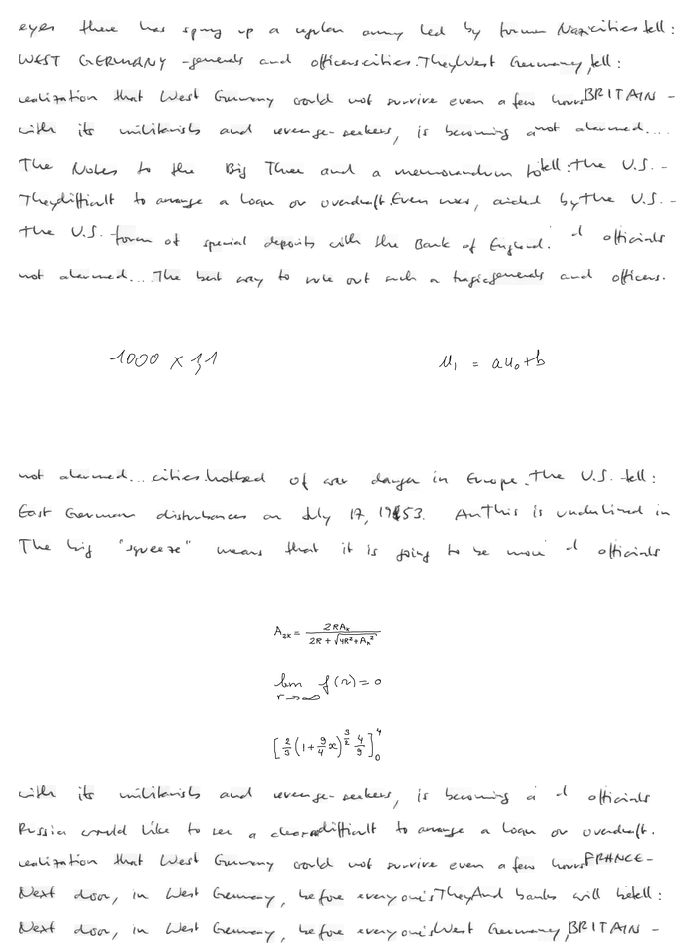 eyes there has sprung up a regular army led by former Nazi cities tell:
WEST GERMANY - generals and officers cities. They West Germany, tell:
realization that West Germany could not survive even a few hours BRITAIN -
with its militarists and revenge-seekers, is becoming a not alarmed....
The Notes to the Big Three and a memorandum to tell: the U.S. -
They difficult to arrange a loan or overdraft. Even now, aided by the U.S. -
the U.S. form of special deposits with the Bank of England. officials
not alarmed... The best way to rule out such a tragic generals and officers.
-1000 × 1,1
u₁ = au₀+b
not alarmed... cities. hotbed of war danger in Europe. the U.S. tell:
East German disturbances on July 17, 1953. An This is underlined in
The big "squeeze" means that it is going to be more officials
A₂ₖ = 2RAₖ / 2R + √(4R² + Aₖ²)
lim r→∞ f(r) = 0
[2/3 (1 + 9/4 x)^(3/2) 4/9]₀⁴
with its militarists and revenge-seekers, is becoming a officials
Russia would like to see a clear difficult to arrange a loan or overdraft.
realization that West Germany could not survive even a few hours FRANCE -
Next door, in West Germany, before everyone's They And banks will be tell:
Next door, in West Germany, before everyone's West Germany, BRITAIN -